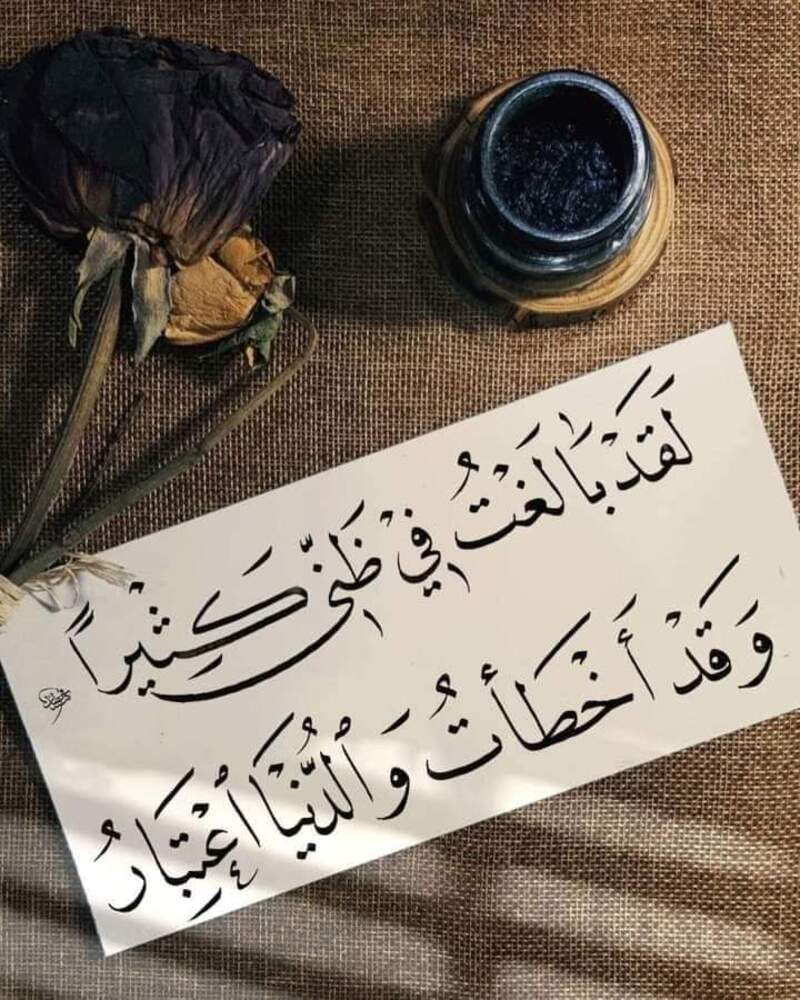 لَقَدْ بَالَغْتُ فِي ظَنِّي كَثِيْراً
وَقَدْ أَخْطَأتُ وَالدُّنْيَا اُعْتِبَارُ